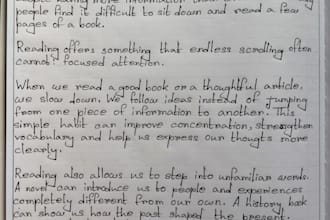 people having more information than
people find it difficult to sit down and read a few
pages of a book.
Reading offers something that endless scrolling often
cannot: focused attention.
When we read a good book or a thoughtful article,
we slow down. We follow ideas instead of jumping
from one piece of information to another. This
simple habit can improve concentration, strengthen
vocabulary and help us express our thougts more
clearly.
Reading also allows us to step into unfamiliar words.
A novel can introduce us to people and experiences
completely different from our own. A history book
can show us how the past shaped the present.